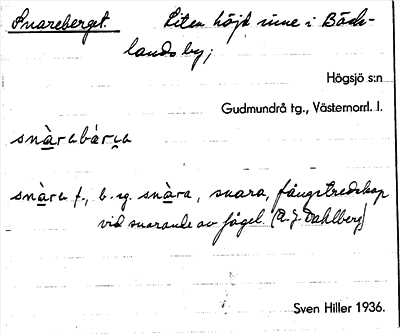 Snareberget. Liten höjd inne i Bäck-
lands by;
Högsjö s:n
Gudmundrå tg., Västernorrl. l.
snàrabàrɟa
snàra f., b. sg. snàra, snara, fångstredskap
vid snarande av fågel. (A. J. Dahlberg)
Sven Hiller 1936.